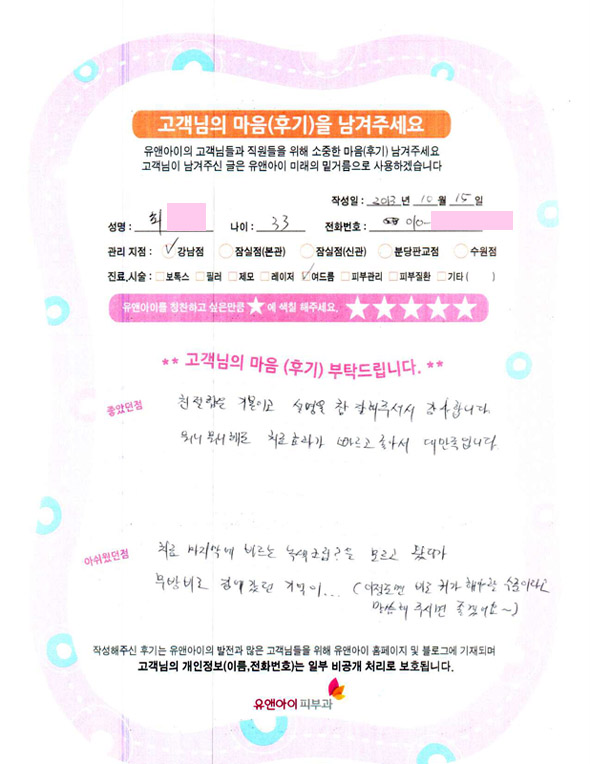 고객님의 마음(후기)을 남겨주세요
유앤아이의 고객님들과 직원들을 위해 소중한 마음(후기) 남겨주세요
고객님이 남겨주신 글은 유앤아이 미래의 밑거름으로 사용하겠습니다
작성일 : 2013 년 10 월 15 일
성명 : 최 나이 : 33 전화번호 : 010-
관리 지점 : 강남점 잠실점(본관) 잠실점(신관) 분당판교점 수원점
진료,시술 : 보톡스 필러 제모 레이저 여드름 피부관리 피부질환 기타 ( )
유앤아이를 칭찬하고 싶은만큼 ★ 에 색칠 해주세요. ★★★★★
** 고객님의 마음 (후기) 부탁드립니다. **
좋았던점 친절함은 기본이고 설명을 참 잘해주셔서 감사합니다.
뭐니뭐니해도 치료효과가 빠르고 좋아서 대만족입니다.
아쉬웠던점 치료 마지막에 바르는 녹색크림?을 모르고 갔다가
무방비로 걸어갔던 기억이... (이정도면 바로 귀가해야할 수준이라고
말씀해 주시면 좋겠어요~)
작성해주신 후기는 유앤아이의 발전과 많은 고객님들을 위해 유앤아이 홈페이지 및 블로그에 기재되며
고객님의 개인정보(이름,전화번호)는 일부 비공개 처리로 보호됩니다.
유앤아이 피부과